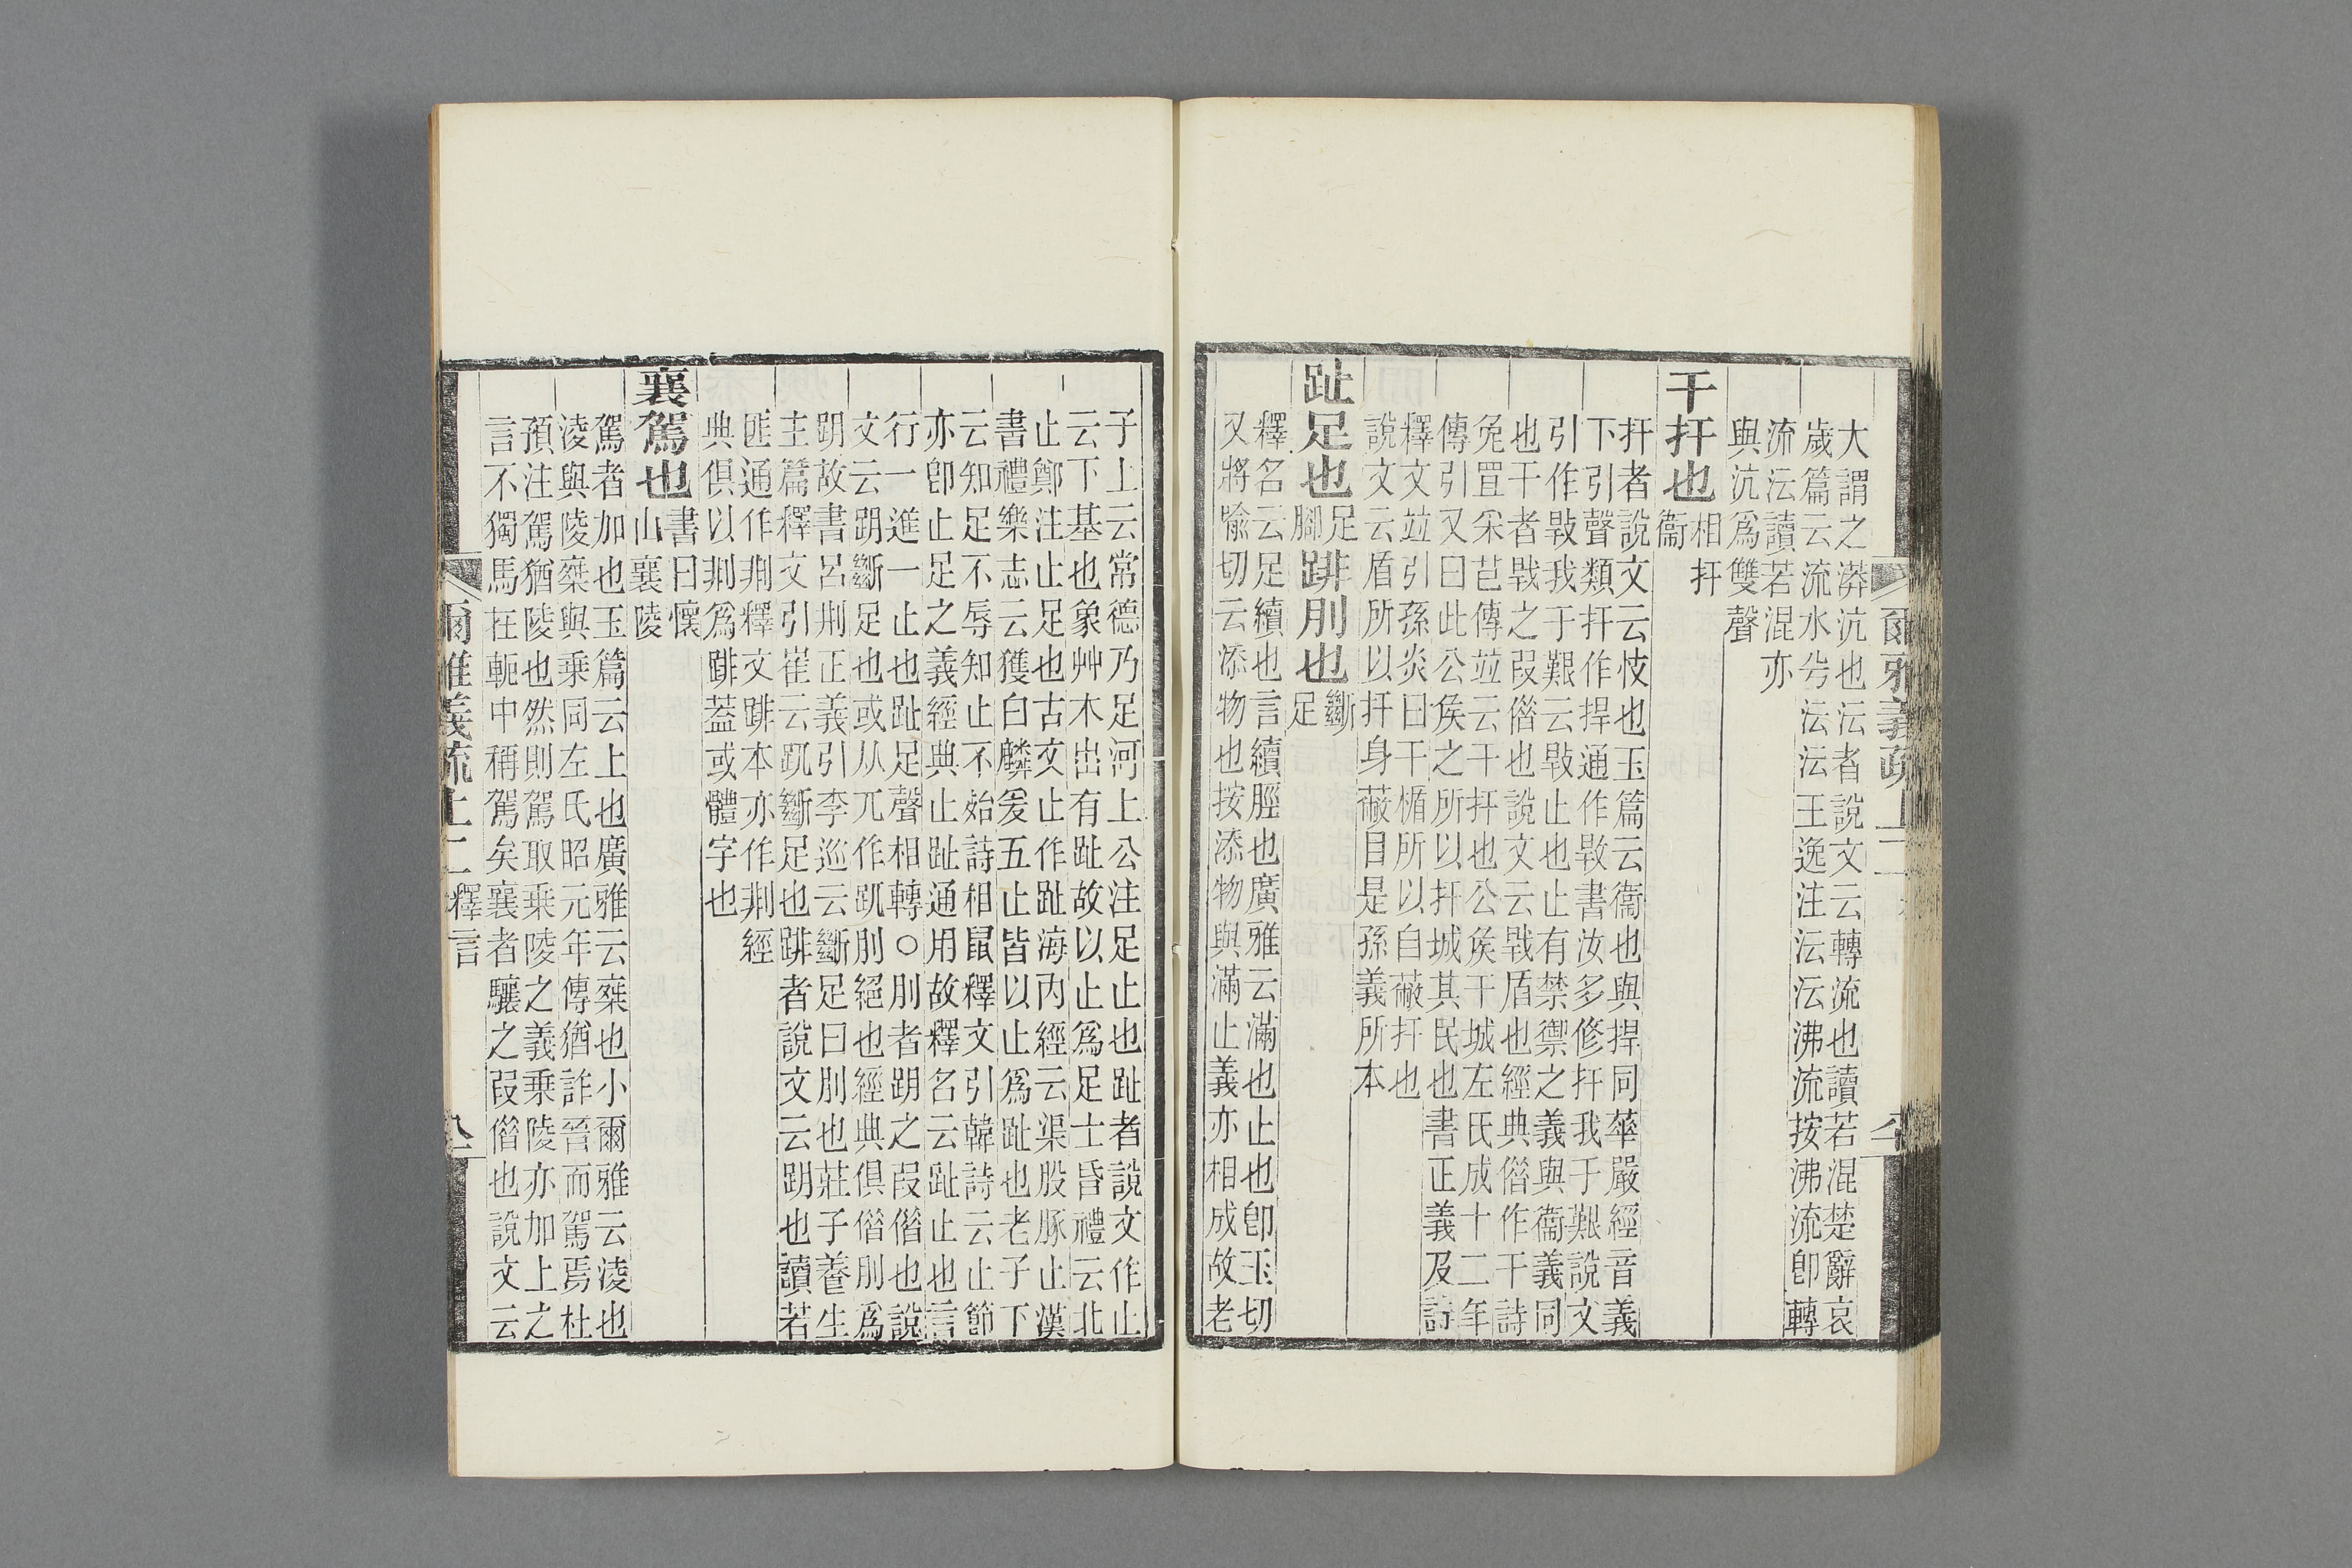 爾雅義疏上二
大謂之漭沆也沄者說文云轉流也讀若混楚辭哀
歲篇云流水兮沄沄王逸注沄沄沸流按沸流卽轉
流沄讀若混亦
與沆爲雙聲
干扞也相扞
衞
扞者說文云忮也玉篇云衞也與捍同華嚴經音義
下引聲類扞作捍通作㪋書汝多修扞我于艱說文
引作㪋我于艱云㪋止也止有禁禦之義與衞義同
也干者之叚借也說文云盾也經典借作干詩
兔罝采芑傳竝云干扞也公侯干城左氏成十二年
傳引又曰此公侯之所以扞城其民也書正義及詩
釋文竝引孫炎曰干楯所以自蔽扞也
說文云盾所以扞身蔽目是孫義所本
趾足也足
腳䠊刖也斷
足
釋名云足續也言續脛也廣雅云滿也止也卽玉切
又將喻切云添物也按添物與滿止義亦相成故老
子上云常德乃足河上公注足止也趾者說文作止
云下基也象艸木出有趾故以止爲足士昏禮云北
止鄭注止足也古文止作趾海內經云渠股豚止漢
書禮樂志云獲白麟爰五止皆以止爲趾也老子下
云知足不辱知止不始詩相鼠釋文引韓詩云止節
亦卽止足之義經典止趾通用故釋名云趾止也言
行一進一止也趾足聲相轉○刖者跀之叚借也說
文云跀斷足也或从兀作𧿁刖絕也經典俱借刖爲
跀故書呂刑正義引李巡云斷足曰刖也莊子養生
主篇釋文引崔云𧿁斷足也䠊者說文云跀也讀若
匪通作剕釋文䠊本亦作剕經
典俱以剕爲䠊蓋或體字也
襄駕也書曰懷
山襄陵
駕者加也玉篇云上也廣雅云椉也小爾雅云淩也
淩與陵椉與乘同左氏昭元年傳猶詐晉而駕焉杜
預注駕猶陵也然則駕取乘陵之義乘陵亦加上之
言不獨馬在軛中稱駕矣襄者驤之叚借也說文云
爾雅義疏上二 釋言